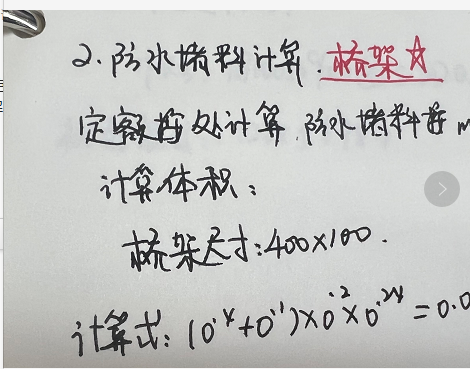 2. 防水堵料计算. 桥架☆
定额按处计算, 防水堵料按m
计算体积:
桥架尺寸:400×100.
计算式: (0.4+0.1)×0.2×0.24=0.0